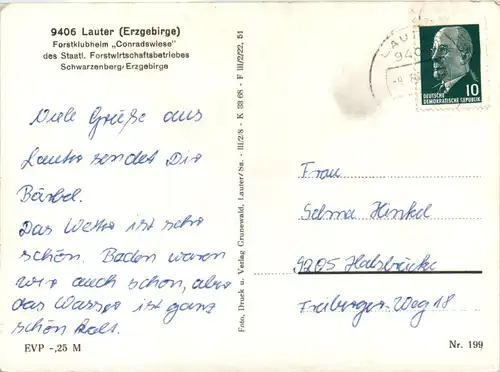 9406 Lauter (Erzgebirge)
Forstklubheim „Conradswiese"
des Staatl. Forstwirtschaftsbetriebes
Schwarzenberg/Erzgebirge
Viele Grüße aus
Lauter sendet Dir
Bärbel.
Das Wetter ist sehr
schön. Baden waren
wir auch schon, aber
das Wasser ist ganz
schön kalt.
EVP -,25 M
Foto, Druck u. Verlag Grunewald, Lauter/Sa. - III/2/8 - K 33/68 - F III/2/22, 51
LAUTER
940
10
DEUTSCHE
DEMOKRATISCHE REPUBLIK
Frau
Selma Hinkel
9205 Halsbrücke
Freiberger Weg 18
Nr. 199